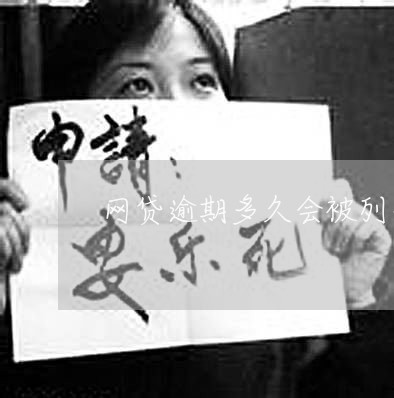 申請：
网贷逾期多久会被列
安乐死